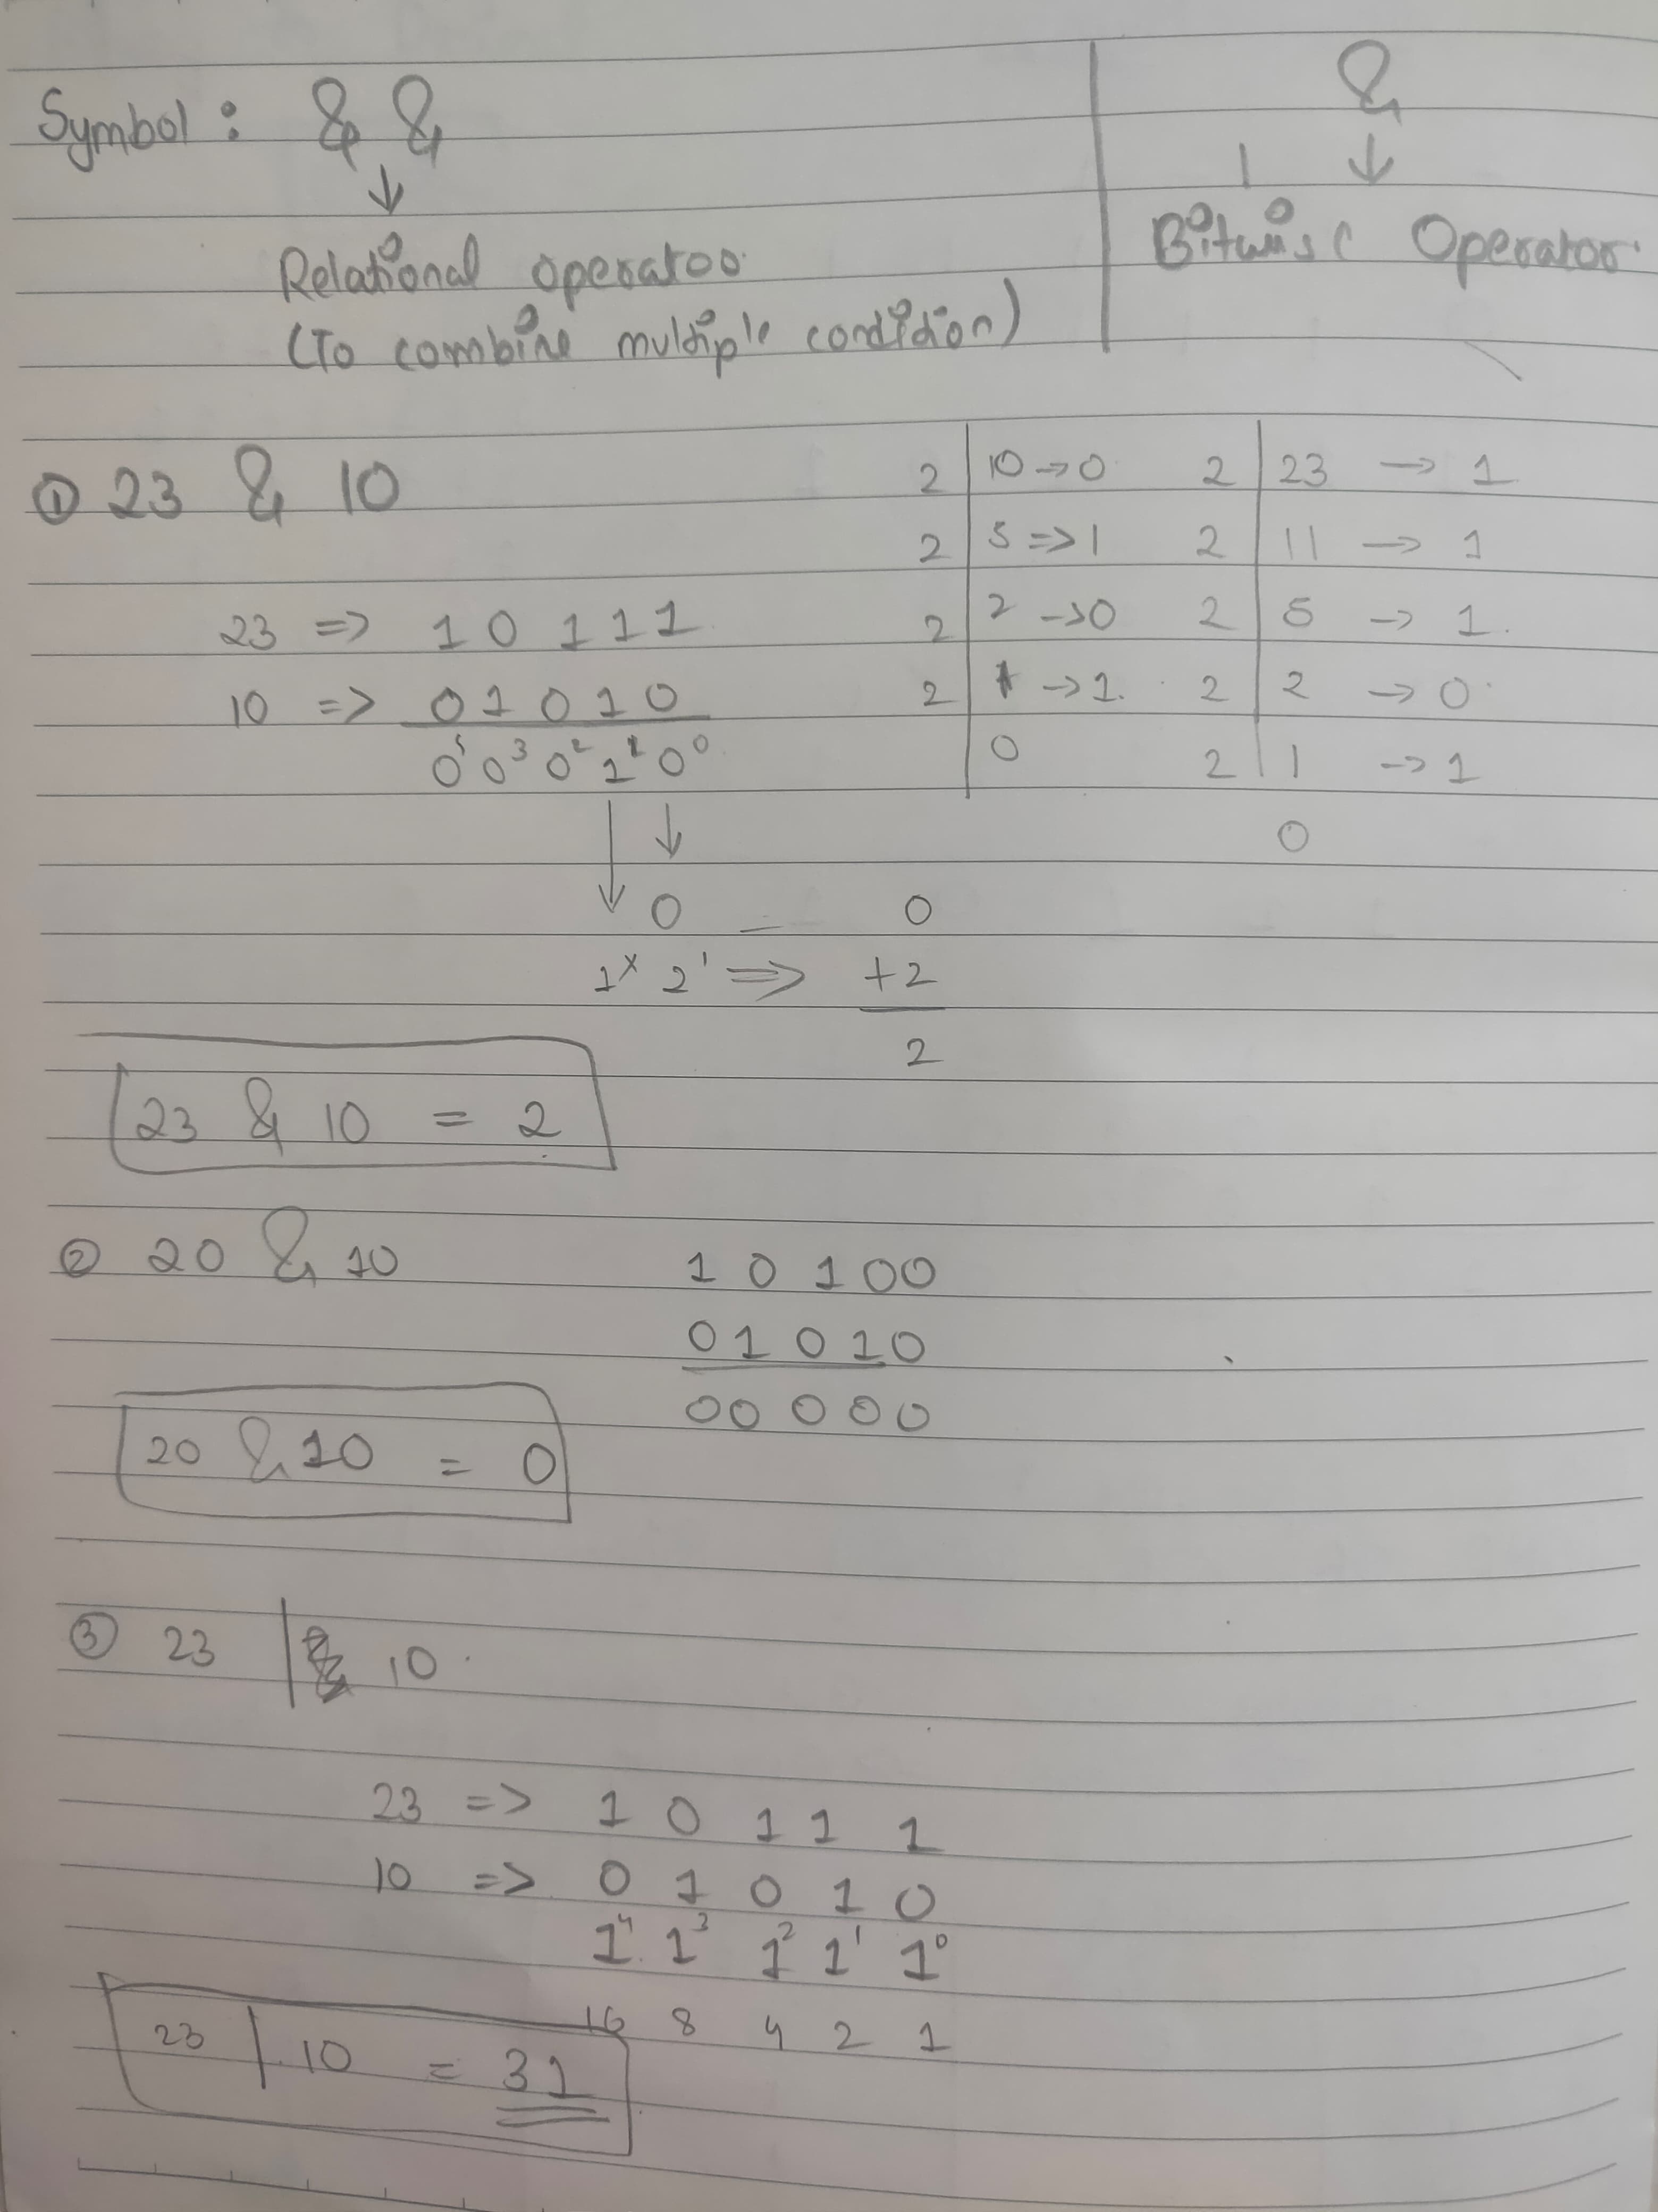 Symbol : & &
↓
Relational operator
(To combine multiple condition)
&
| ↓
Bitwise Operator
① 23 & 10
23 => 1 0 1 1 1
10 => 0 1 0 1 0
0⁵ 0³ 0² 1¹ 0⁰
2 | 10 → 0
2 | 5 => 1
2 | 2 → 0
2 | 1 → 1.
0
2 | 23 → 1
2 | 11 → 1
2 | 5 → 1.
2 | 2 → 0
2 | 1 → 1
0
↓ ↓
0 _ 0
1 x 2¹ => +2
2
23 & 10 = 2
② 20 & 10
1 0 1 0 0
0 1 0 1 0
0 0 0 0 0
20 & 10 = 0
③ 23 | 10
23 => 1 0 1 1 1
10 => 0 1 0 1 0
1⁴ 1³ 1² 1¹ 1⁰
16 8 4 2 1
23 | 10 = 31